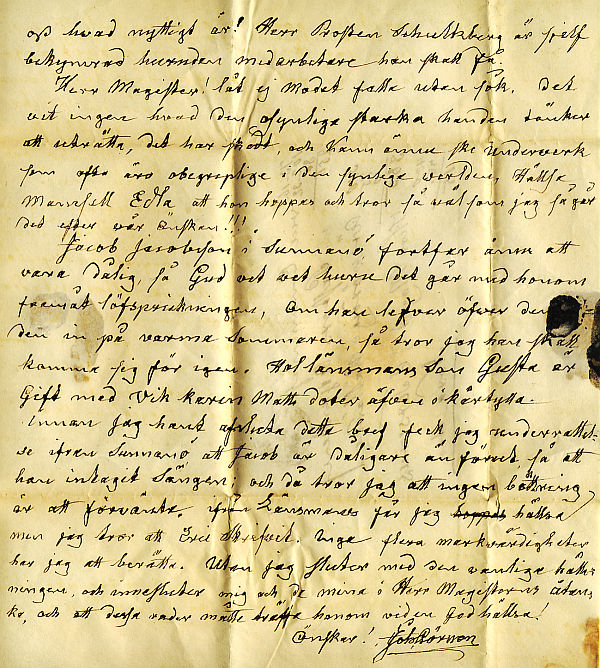 oss hvad nyttigt är! Herr Prosten Schultzberg är sjelf
bekymrad hurudan medarbetare han skall få.
Herr Magister! låt ej Modet falla utan sök. Det
vet ingen hvad den osynliga starka handen tänker
att uträtta, det har skedt, och kann ännu ske Underwerk
som ofta äro obegriplige i den synliga verlden, Hälsa
Mamsell Edla att hon hoppas och tror så wäl som jag så går
det efter vår Önskan!!!
Jacob Jacobsson i Sunnanö fortfar ännu att
vara dålig, så Gud vet vet huru det går med honom
framåt löfsprickningen, Om han lefver öfver den
den in på varma Sommaren, så tror jag han skall
komma sig för igen. Hol länsmans Son Gusta är
Gift med Vik Karin Matts doter äfven
Innan jag hant afskicka detta bref feck jag underrättel-
se ifrån Sunnanö att Jacob är dåligare än förut så att
han intagit Sängen; och då tror jag att ingen bättring
är att förvänta. ifrån Länsmans får jag hälsa
men jag tror att Inga flera markvärdigheter
har jag att berätta. Utan jag sluter med den vanliga häls-
ningen, och innesluter mig och de mina i Herr Magisterns åtan-
ka, och att dessa rader måtte träffa honom viden god hälsa!
Önskar!